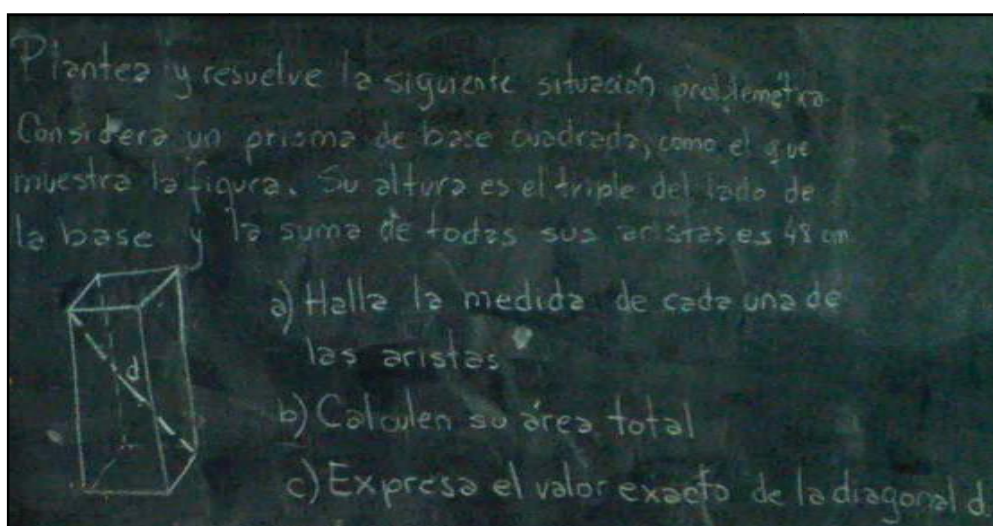 Plantea y resuelve la siguiente situación problemática.
Considera un prisma de base cuadrada, como el que
muestra la figura. Su altura es el triple del lado de
la base y la suma de todas sus aristas es 48 cm
a) Halla la medida de cada una de
las aristas
d
b) Calculen su área total
c) Expresa el valor exacto de la diagonal d.